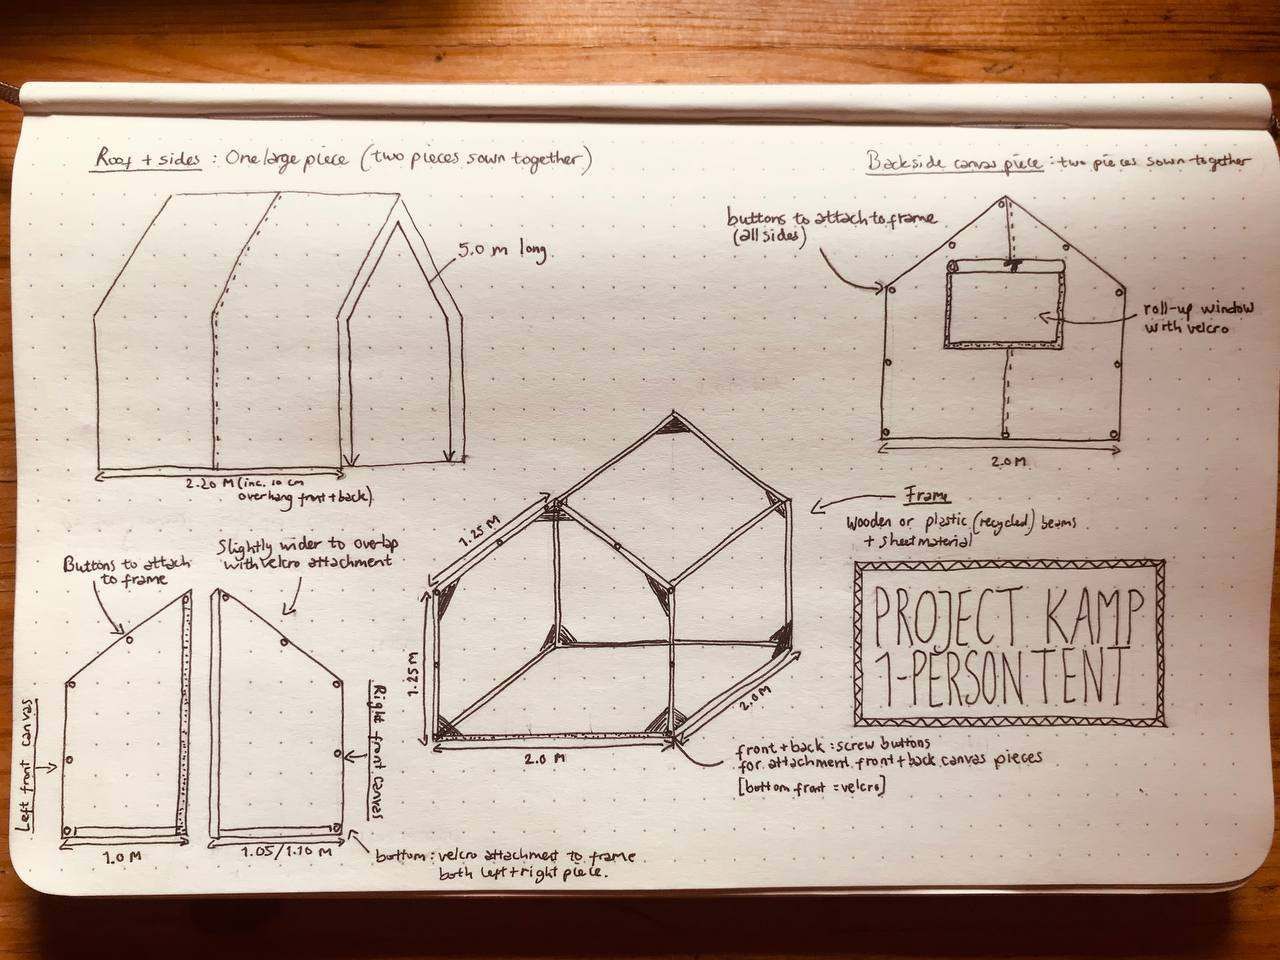 Roof + sides : One large piece (two pieces sown together)
Backside canvas piece : two pieces sown together
buttons to attach to frame
(all sides)
5.0 m long
roll-up window
with velcro
2.20 M (inc. 10 cm
overhang front + back)
2.0 M
Frame
Wooden or plastic (recycled) beams
+ sheet material
1.25 M
Buttons to attach
to frame
Slightly wider to overlap
with velcro attachment
PROJECT KAMP
1-PERSON TENT
1.25 M
2.0 M
2.0 M
Left front canvas
Right front canvas
front + back : screw buttons
for attachment front + back canvas pieces
[bottom front = velcro]
1.0 M
1.05/1.10 M
bottom : velcro attachment to frame
both left + right piece.